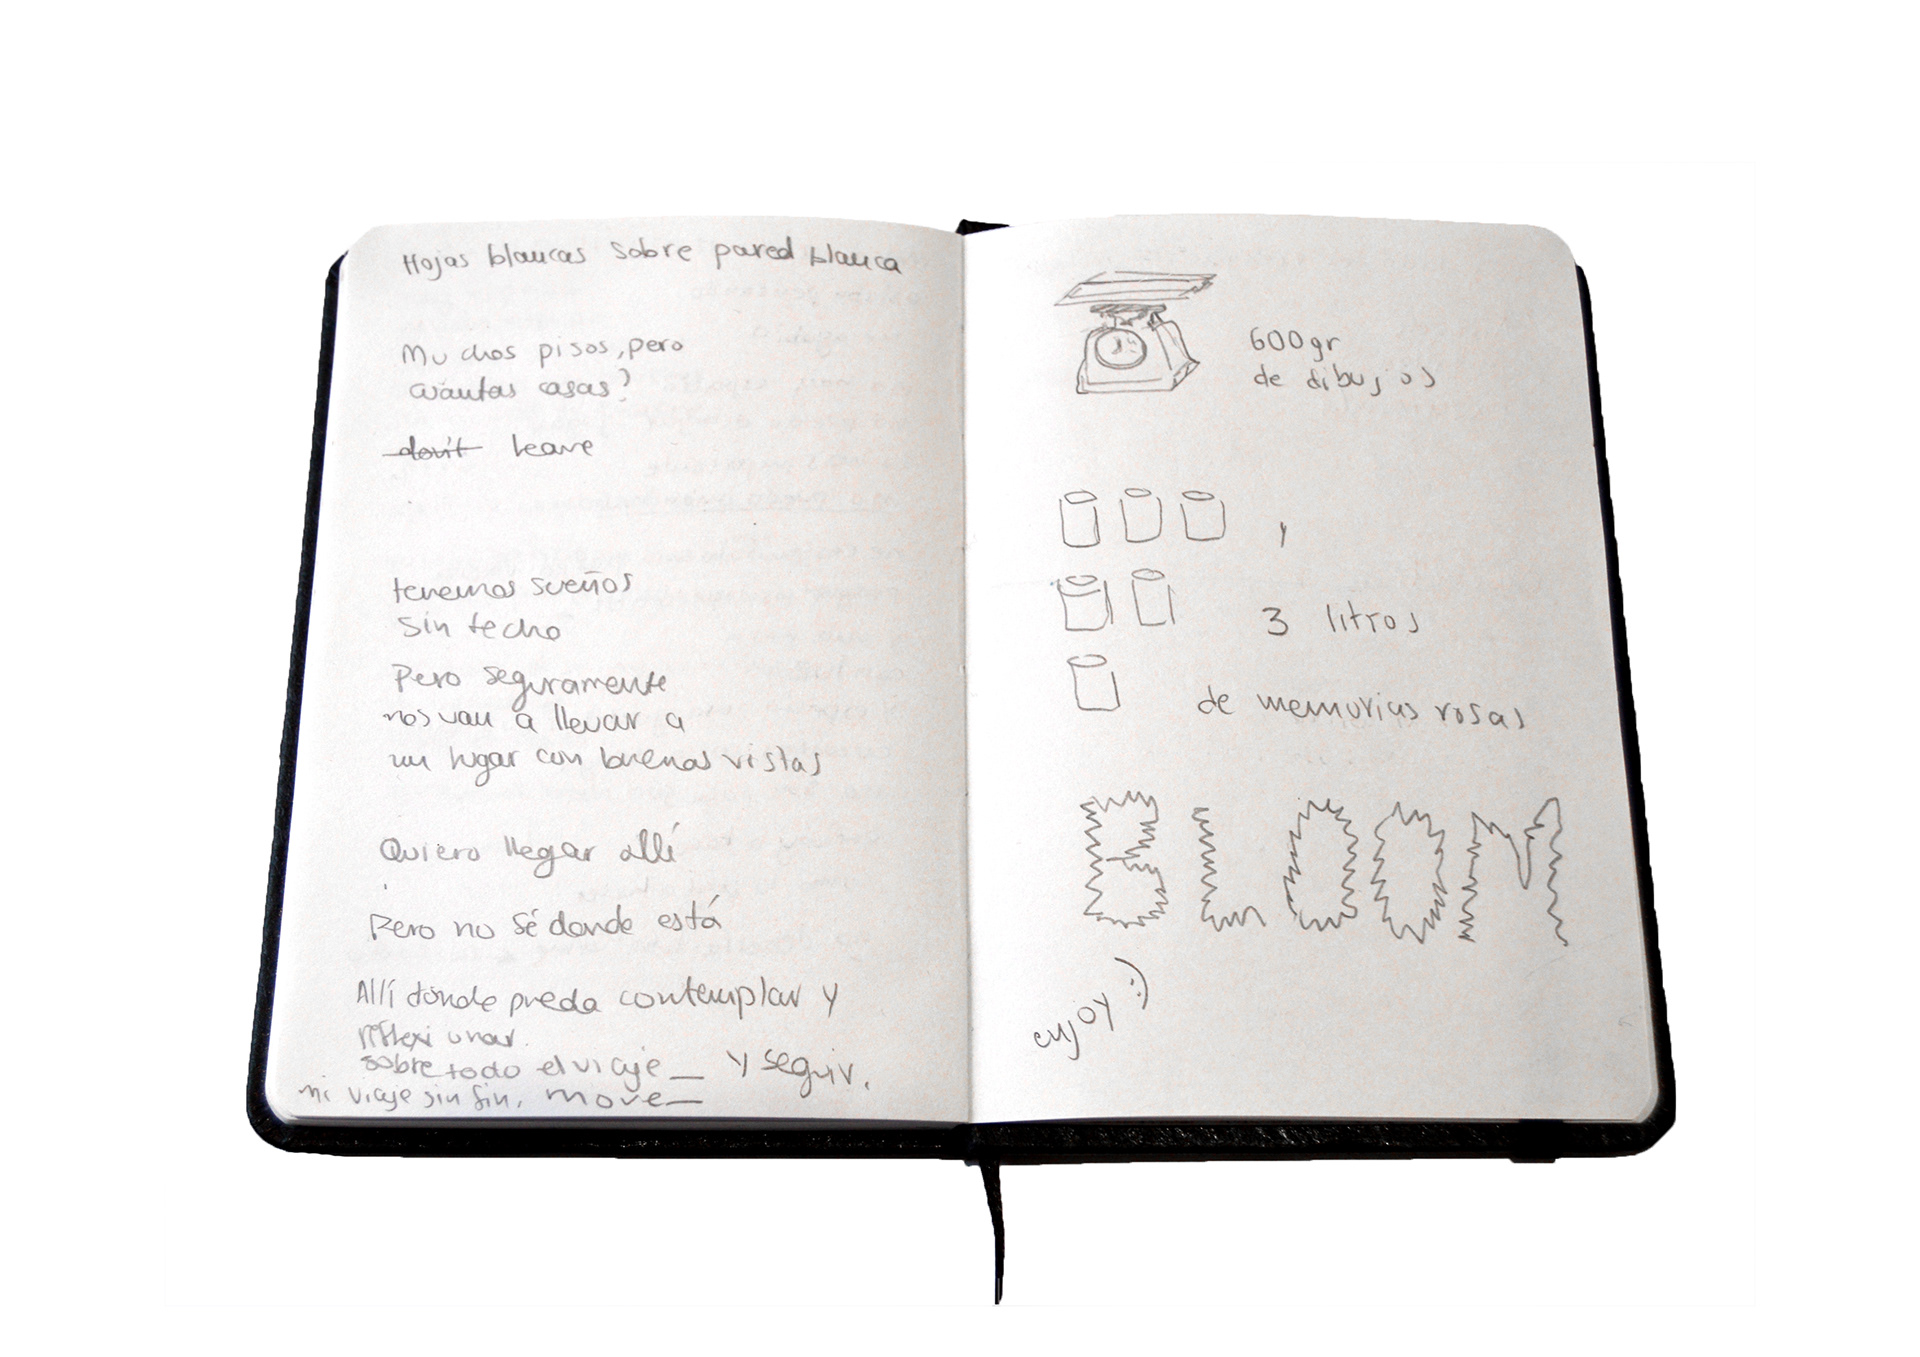 Hojas blancas sobre pared blanca
Muchos pisos, pero
cuántas casas?
don't leave
tenemos sueños
sin techo
Pero seguramente
nos van a llevar a
un lugar con buenas vistas
Quiero llegar allí
Pero no sé donde está
Allí dónde pueda contemplar y
reflexionar
sobre todo el viaje_ y seguir.
mi viaje sin fin. move_
600gr
de dibujos
,
3 litros
de memorias rosas
BLOOM
enjoy :)